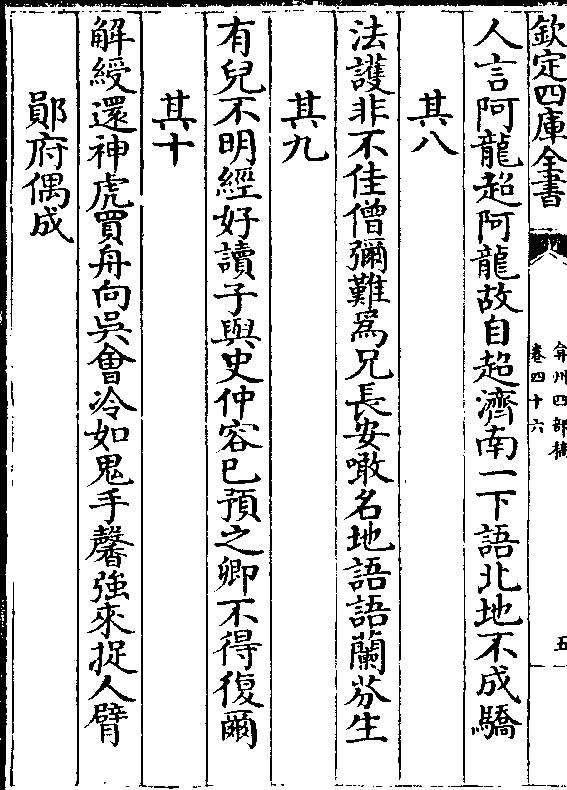 欽定四庫全書
弇州四部稿
卷四十六
五
人言阿龍超阿龍故自超濟南一下語北地不成驕
其八
法護非不佳僧彌難為兄長安噉名地語語蘭芬生
其九
有兒不明經好讀子與史仲容已預之卿不得復爾
其十
解綬還神虎買舟向吳會冷如鬼手馨強來捉人臂
鄖府偶成